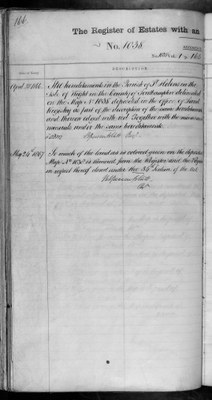 166.
The Register of Estates with an
No. 1038
DESCRIPTION.
Date of Entry.
April 1866. All hereditaments in the Parish of St Helens in the
Isle of Wight in the County of Southampton delineated
on the Map No 1038 deposited in the office of Land
Registry as part of the description of the same hereditaments
and thereon edged with red Together with the mines and
minerals under the same hereditaments
May 24th 1867 So much of the land as is colored green on the deposited
Map No 1038 is removed from the Register and the
as regard thereof closed under the 34th Section of the Act